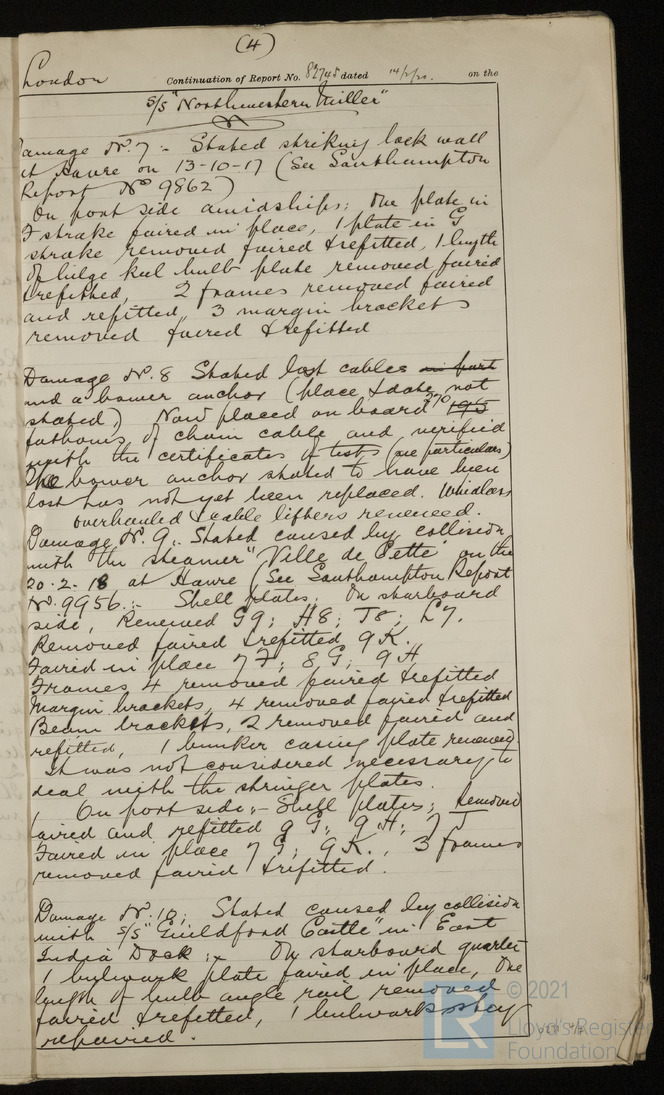 (4)
London Continuation of Report No. 82745 dated 14/2/20. on the
S/S "Northwestern Miller"
amage No. 7 :- Stated striking lock wall
at Havre on 13-10-17 (See Southampton
Report No 9862)
On port side amidships; One plate in
F strake faired in place, 1 plate in G
strake removed faired & refitted, 1 length
of bilge keel bulb plate removed faired
& refitted, 2 frames removed faired
and refitted, 3 margin brackets
removed faired & refitted
Damage No. 8 Stated lost cables in port
and a bower anchor (place & date not
stated) Now placed on board 270 195
fathoms of chain cable and verified
with the certificates of tests (see particulars)
The bower anchor stated to have been
lost has not yet been replaced. Windlass
overhauled & cable lifters renewed.
Damage No. 9. Stated caused by collision
with the steamer "Ville de Cette" on the
20-2-18 at Havre (See Southampton Report
No. 9956 :- Shell plates. On starboard
side, Renewed G9; H8; J8; L7.
Removed faired & refitted 9 K.
Faired in place 7 F; 8 G; 9 H
Frames 4 removed faired & refitted
Margin brackets, 4 removed faired & refitted
Beam brackets, 2 removed faired and
refitted, 1 bunker casing plate renewed
It was not considered necessary to
deal with the stringer plates.
On port side :- Shell plates; Removed
faired and refitted 9 G; 9 H; 7 J
Faired in place 7 G; 9 K., 3 frames
removed faired & refitted.
Damage No. 10; Stated caused by collision
with S/S "Guildford Castle" in East
India Dock :- On starboard quarter
1 bulwark plate faired in place, One
length of bulb angle rail removed
faired & refitted, 1 bulwark stay
repaired.
© 2021
LR
Lloyd's Register
Foundation